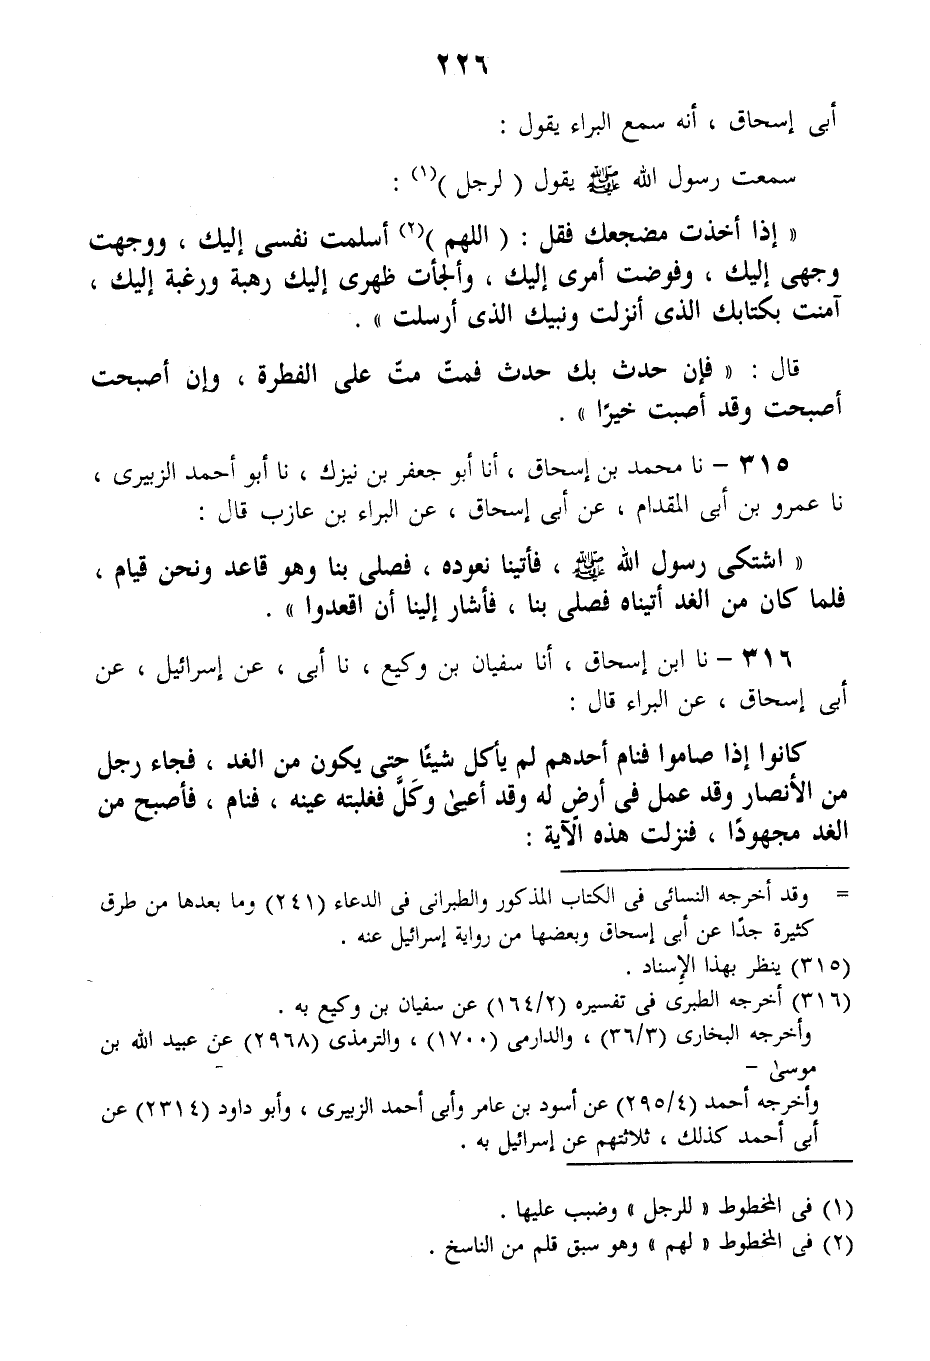 ٢٢٦
أبى إسحاق ، أنه سمع البراء يقول :
سمعت رسول الله ﷺ يقول ( لرجل )(١) :
« إذا أخذت مضجعك فقل : ( اللهم )(٢) أسلمت نفسى إليك ، ووجهت
وجهى إليك ، وفوضت أمرى إليك ، وألجأت ظهرى إليك رهبة ورغبة إليك ،
آمنت بكتابك الذى أنزلت ونبيك الذى أرسلت » .
قال : « فإن حدث بك حدث فمتّ متّ على الفطرة ، وإن أصبحت
أصبحت وقد أصبت خيرًا » .
٣١٥ – نا محمد بن إسحاق ، أنا أبو جعفر بن نيزك ، نا أبو أحمد الزبيرى ،
نا عمرو بن أبى المقدام ، عن أبى إسحاق ، عن البراء بن عازب قال :
« اشتكى رسول الله ﷺ ، فأتينا نعوده ، فصلى بنا وهو قاعد ونحن قيام ،
فلما كان من الغد أتيناه فصلى بنا ، فأشار إلينا أن اقعدوا » .
٣١٦ – نا ابن إسحاق ، أنا سفيان بن وكيع ، نا أبى ، عن إسرائيل ، عن
أبى إسحاق ، عن البراء قال :
كانوا إذا صاموا فنام أحدهم لم يأكل شيئًا حتى يكون من الغد ، فجاء رجل
من الأنصار وقد عمل فى أرضٍ له وقد أعيىٰ وكَلَّ فغلبته عينه ، فنام ، فأصبح من
الغد مجهودًا ، فنزلت هذه الآية :
= وقد أخرجه النسائى فى الكتاب المذكور والطبرانى فى الدعاء (٢٤١) وما بعدها من طرق
كثيرة جدًا عن أبى إسحاق وبعضها من رواية إسرائيل عنه .
(٣١٥) ينظر بهذا الإسناد .
(٣١٦) أخرجه الطبرى فى تفسيره (١٦٤/٢) عن سفيان بن وكيع به .
وأخرجه البخارى (٣٦/٣) ، والدارمى (١٧٠٠) ، والترمذى (٢٩٦٨) عن عبيد الله بن
موسىٰ –
وأخرجه أحمد (٢٩٥/٤) عن أسود بن عامر وأبى أحمد الزبيرى ، وأبو داود (٢٣١٤) عن
أبى أحمد كذلك ، ثلاثتهم عن إسرائيل به .
(١) فى المخطوط « للرجل » وضبب عليها .
(٢) فى المخطوط « لهم » وهو سبق قلم من الناسخ .